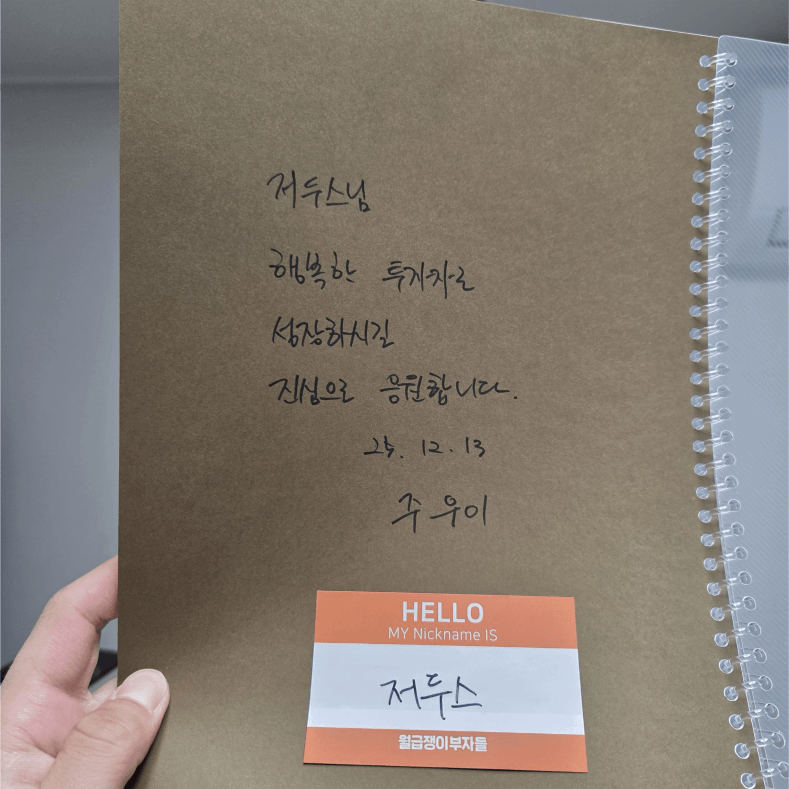 저두스님
행복한 투자자로
성장하시길
진심으로 응원합니다.
25. 12. 13
주우이
HELLO
MY Nickname IS
저두스
월급쟁이부자들